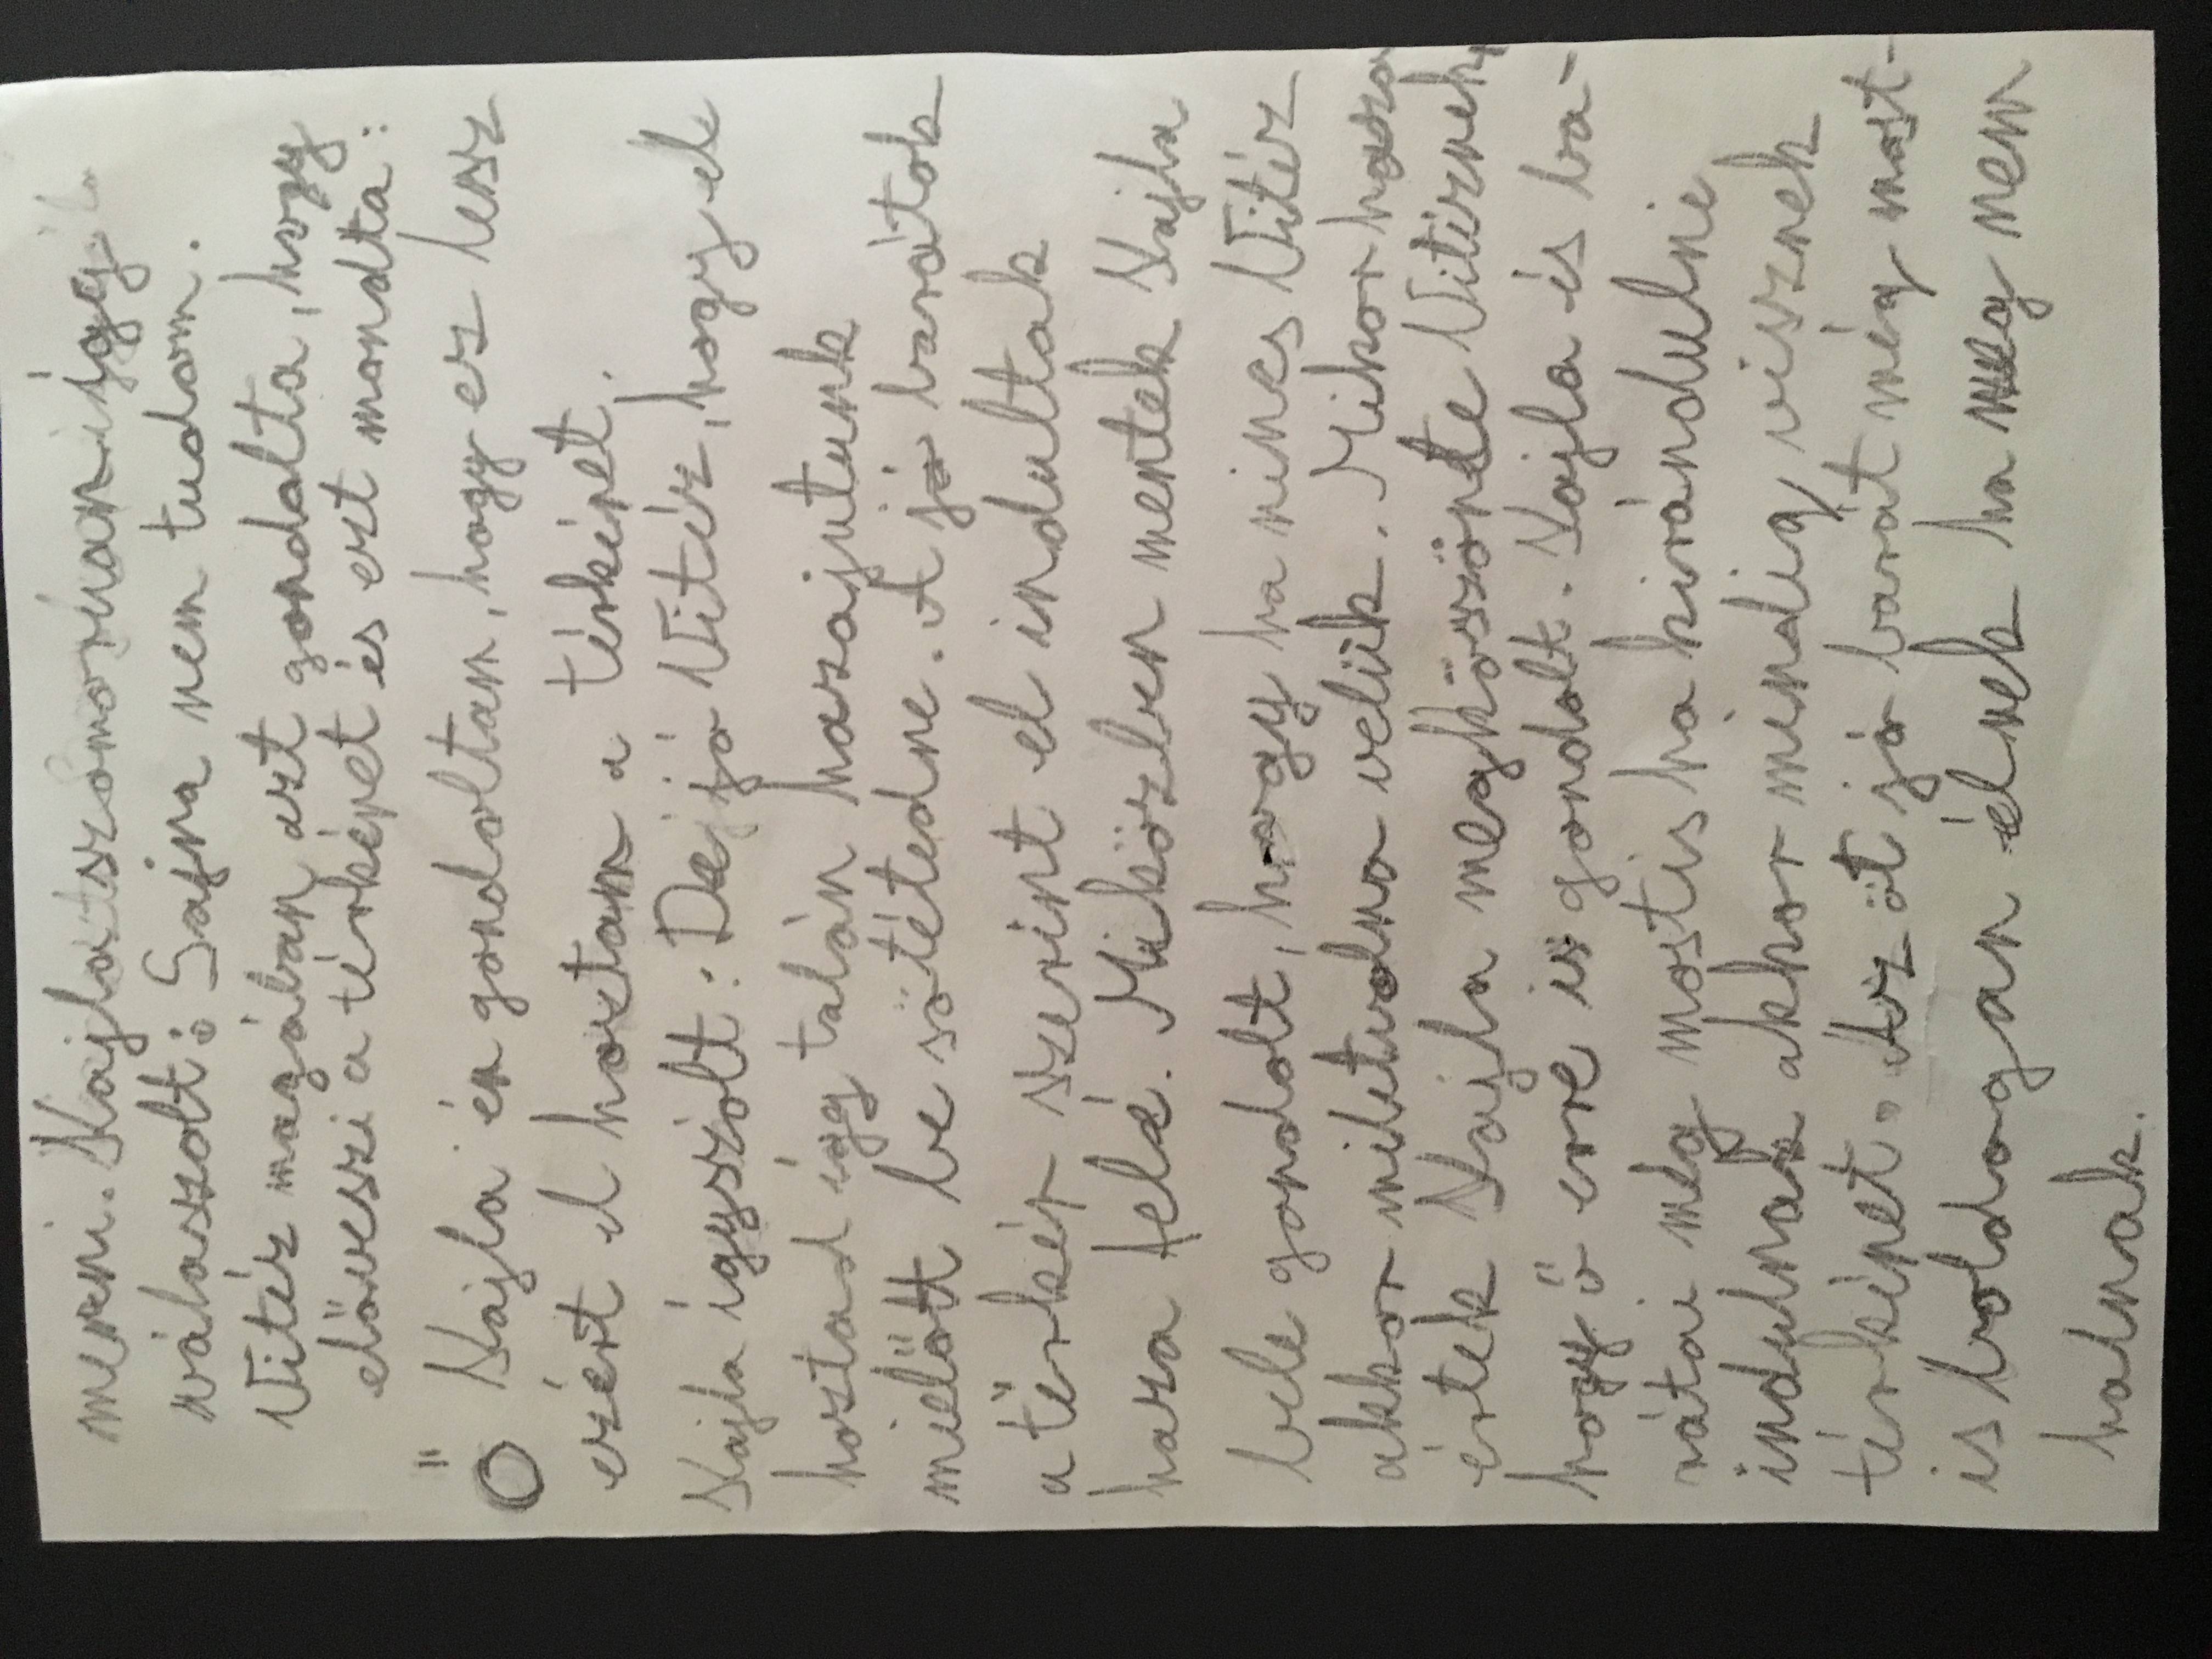 menni. Kajla szomorúan így
válaszolt: Sajna nem tudom.
Vitéz magában azt gondolta, hogy
előveszi a térképet és ezt mondta:
Ő Kajla én gondoltam, hogy ez lesz
ezért el hoztam a térképet.
Kajla így szólt: De jó Vitéz, hogy el
hoztad így talán hazajutunk
mielőtt be sötétedne. A jó barátok
a térkép szerint el indultak
haza felé. Miközben mentek Kajla
bele gondolt, hogy ha nincs Vitéz
akkor mi let volna velük. Mikor haza
értek Kajla megköszönte Vitéznek,
hogy ő erre is gondolt. Kajla és ba-
rátai még mostis ha kirándulni
indulnak akkor mindig visznek
térképet. Az öt jó barát még most-
is boldogan élnek ha meg nem
halnak.